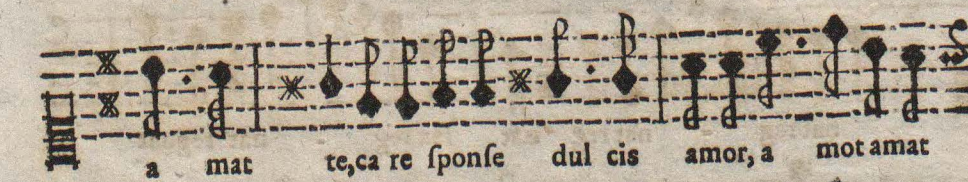 a mat te,ca re ſponſe dul cis amor, a mot amat